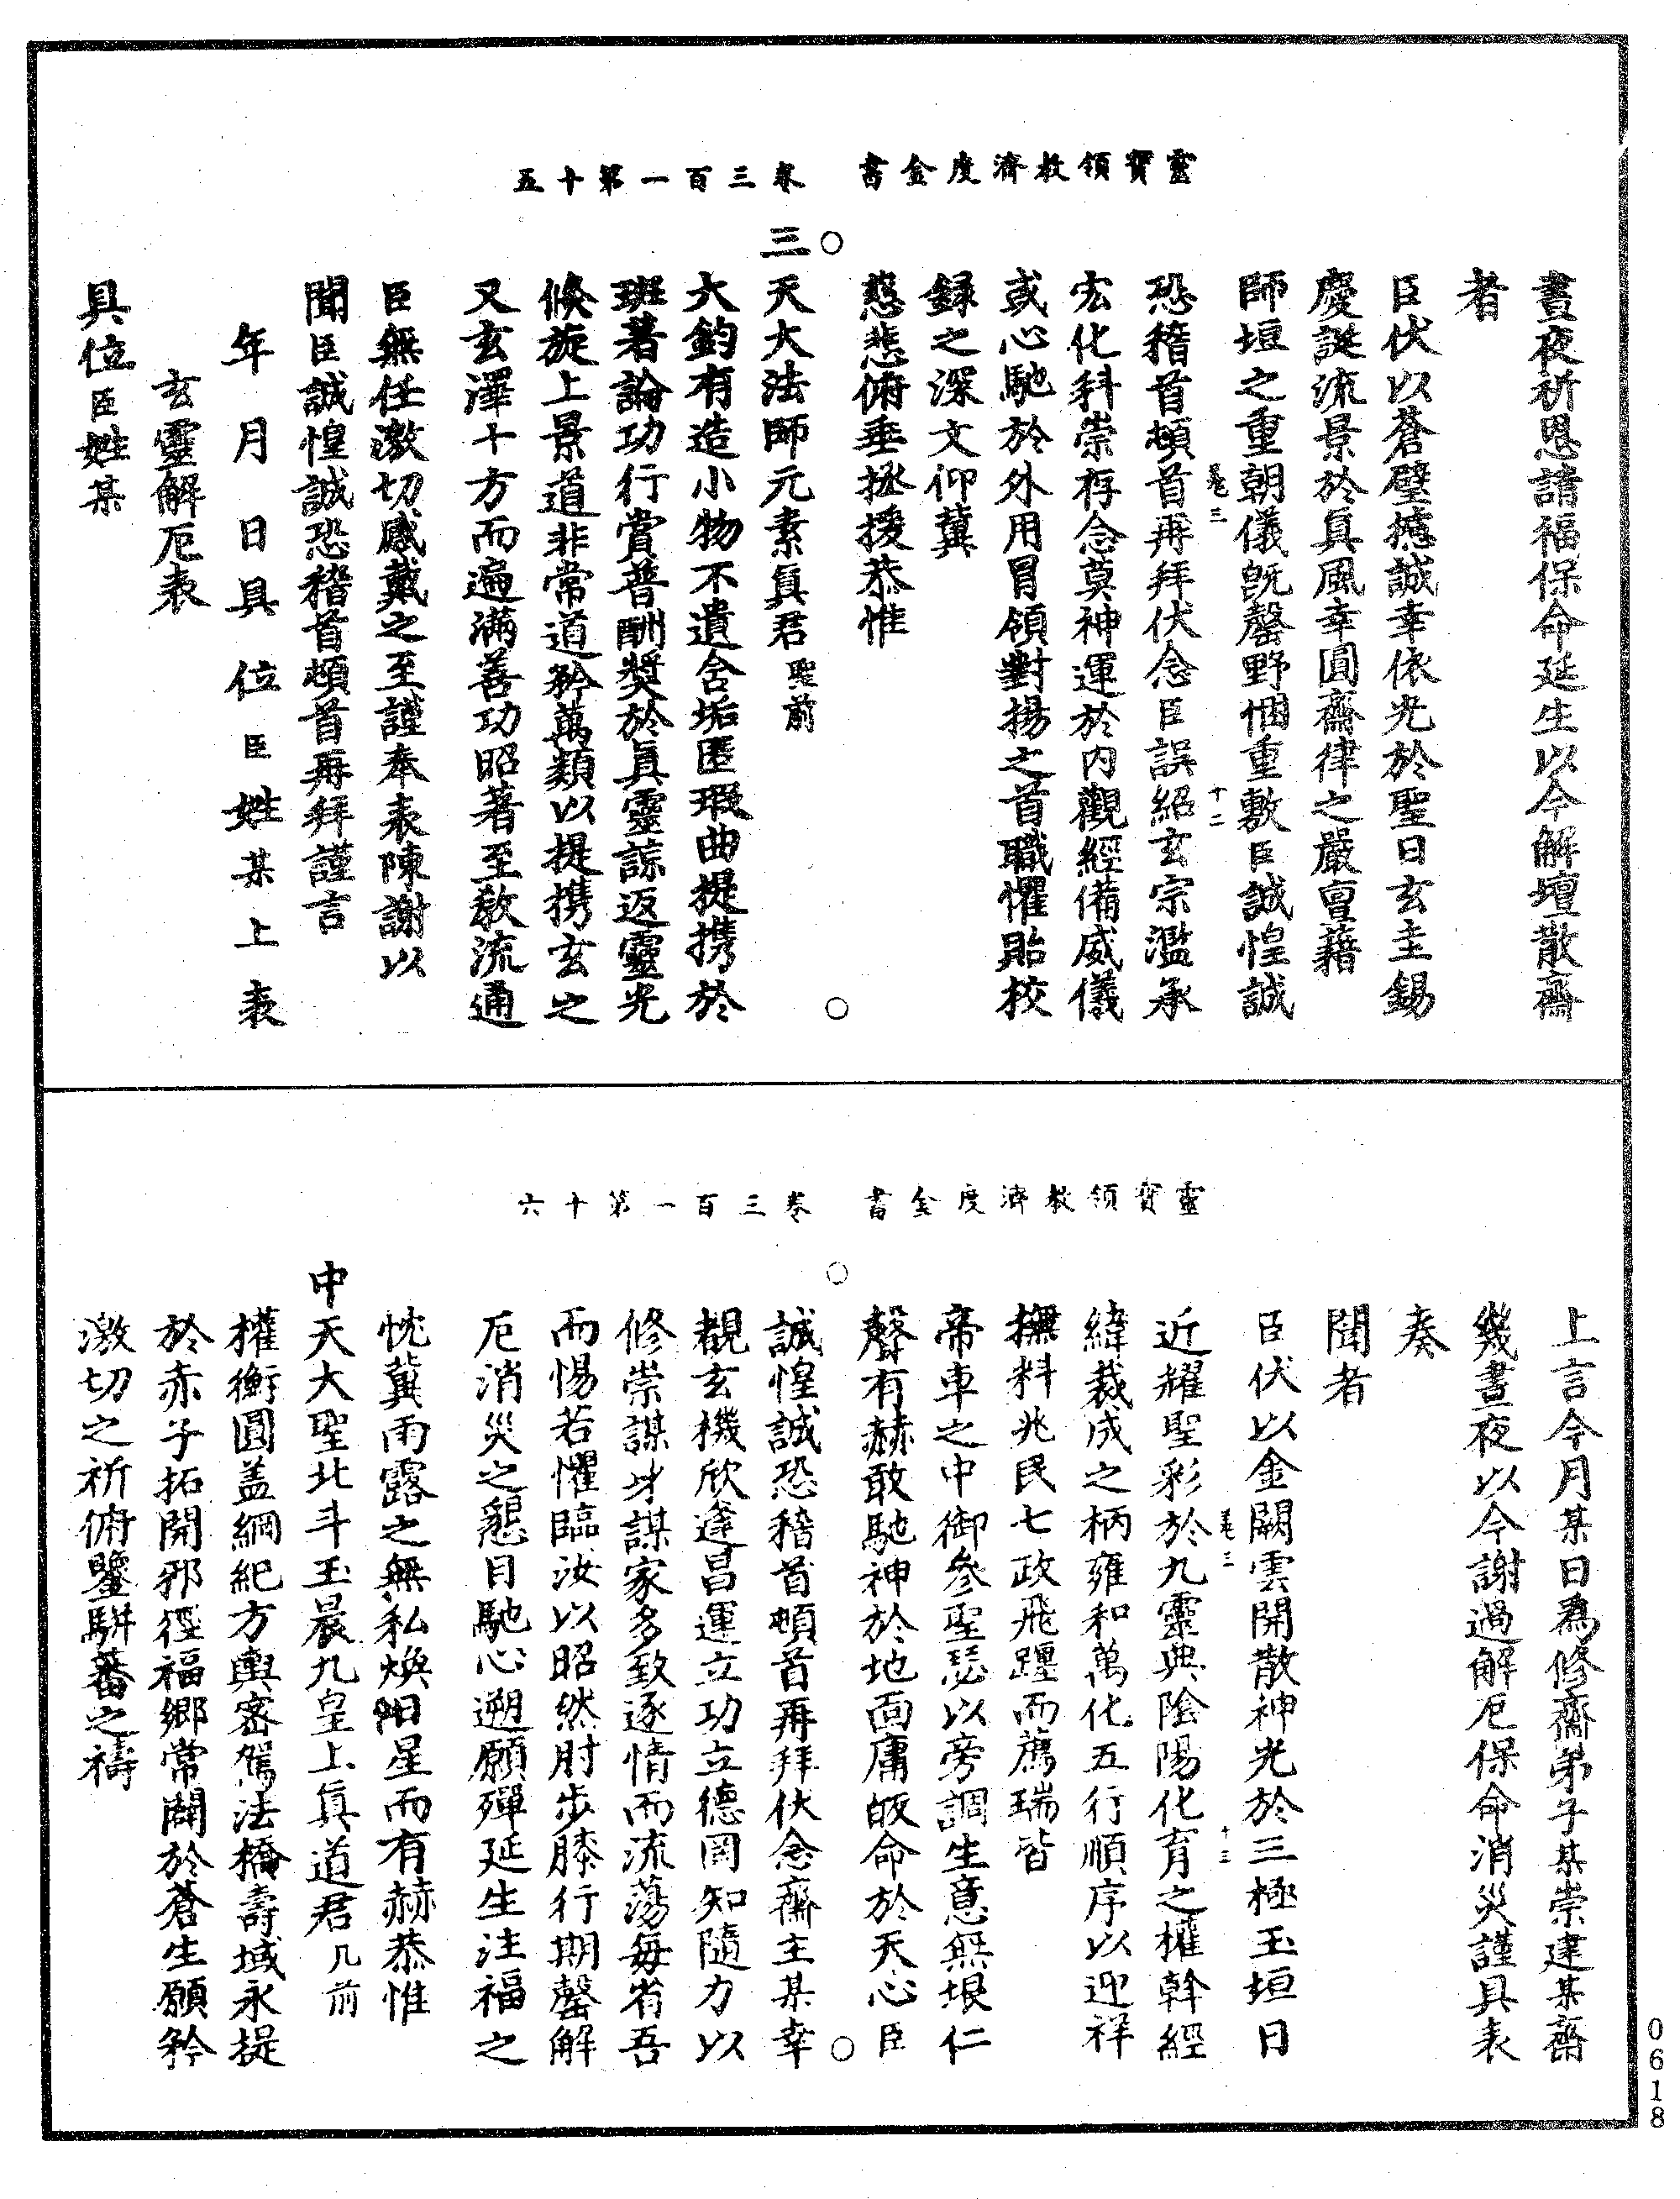 靈寶領教濟度金書　卷三百一第十五
晝夜祈恩請福保命延生以今解壇散齋
者
臣伏以蒼璧摅誠幸依光於聖日玄圭錫
慶誕流景於真風幸圓齋律之嚴亶藉
師垣之重朝儀旣罄野悃重敷臣誠惶誠
卷三　十二
恐稽首頓首再拜伏念臣誤紹玄宗濫承
宏化科崇存念莫神運於內觀經備威儀
或心馳於外用冒領對揚之首職懼貽校
録之深文仰冀
慈悲俯垂拯援恭惟
三天大法師元素真君聖前
大鈞有造小物不遺含垢匿瑕曲提携於
班著論功行賞普酬奬於真靈諒返靈光
倏旋上景道非常道矜萬類以提携玄之
又玄澤十方而遍满善功昭著至教流通
臣無任激切感戴之至謹奉表陳謝以
聞臣誠惶誠恐稽首頓首再拜謹言
年　月　日具　位臣姓某上表
玄靈解厄表
具位臣姓某
靈寶領教濟度金書　卷三百一第十六
上言今月某日爲修齋弟子某崇建某齋
幾晝夜以今謝過解厄保命消災謹具表
奏
聞者
臣伏以金闕雲開散神光於三極玉垣日
卷三　十三
近耀聖彩於九靈典陰陽化育之權斡經
緯裁成之柄雍和萬化五行順序以迎祥
撫料兆民七政飛躔而薦瑞皆
帝車之中御參聖瑟以旁調生意無垠仁
聲有赫敢馳神於地面庸皈命於天心臣
誠惶誠恐稽首頓首再拜伏念齋主某幸
覩玄機欣逢昌運立功立德罔知隨力以
修崇謀身謀家多致逐情而流蕩每省吾
而惕若懼臨汝以昭然肘步膝行期罄解
厄消災之懇目馳心遡願殫延生注福之
忱冀雨露之無私煥陽星而有赫恭惟
中天大聖北斗玉晨九皇上真道君几前
權衡圓盖綱紀方輿密駕法橋壽域永提
於赤子拓開邪徑福鄉常闢於蒼生願矜
激切之祈俯鑒駢蕃之禱
0618